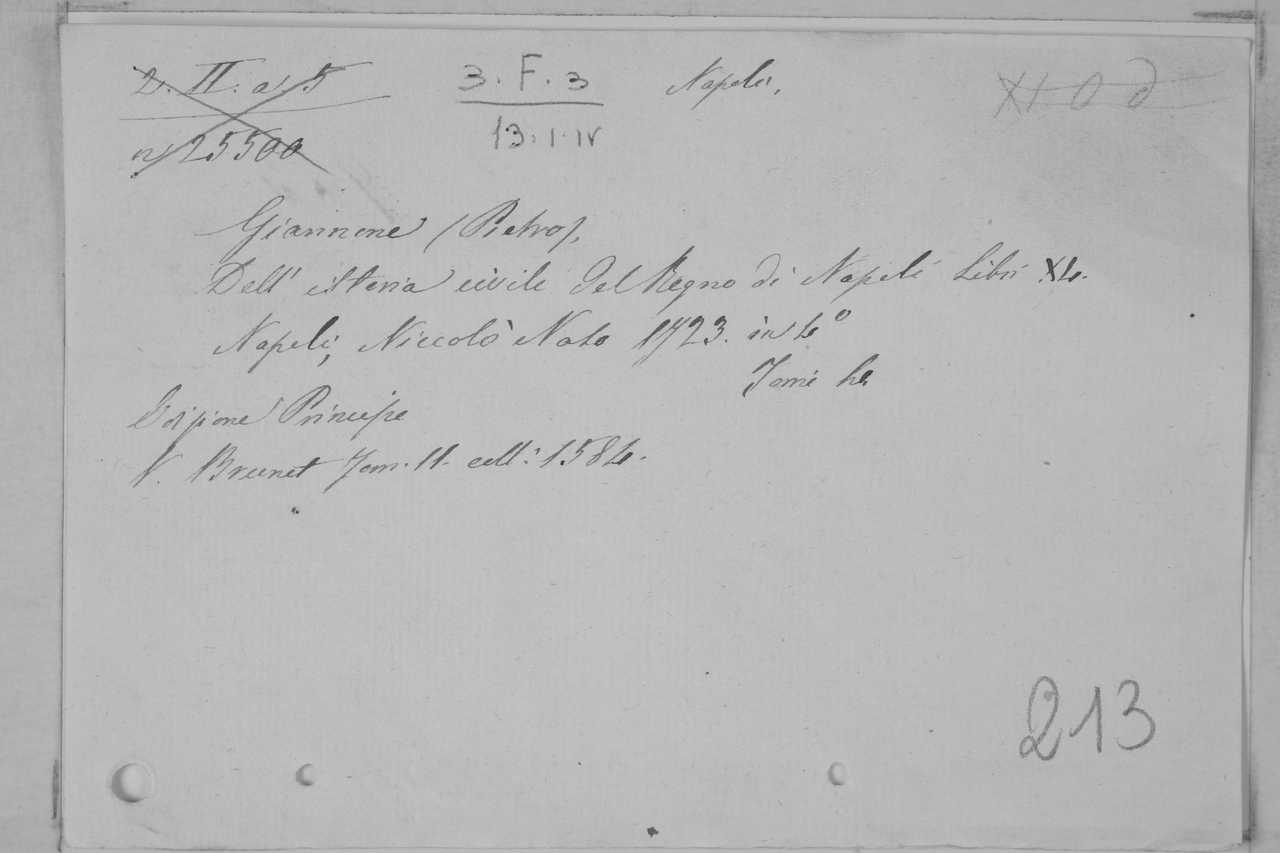 2. II. a. 5
3. F. 3
Napoli,
XI O d
n) 25500
13. I. IV
Giannone (Pietro),
Dell' istoria civile del Regno di Napoli Libri XL.
Napoli, Niccolò Naso 1723. in 4°
Tomi 4
Edizione Principe
V. Brunet Tom. II. coll: 1584.
213